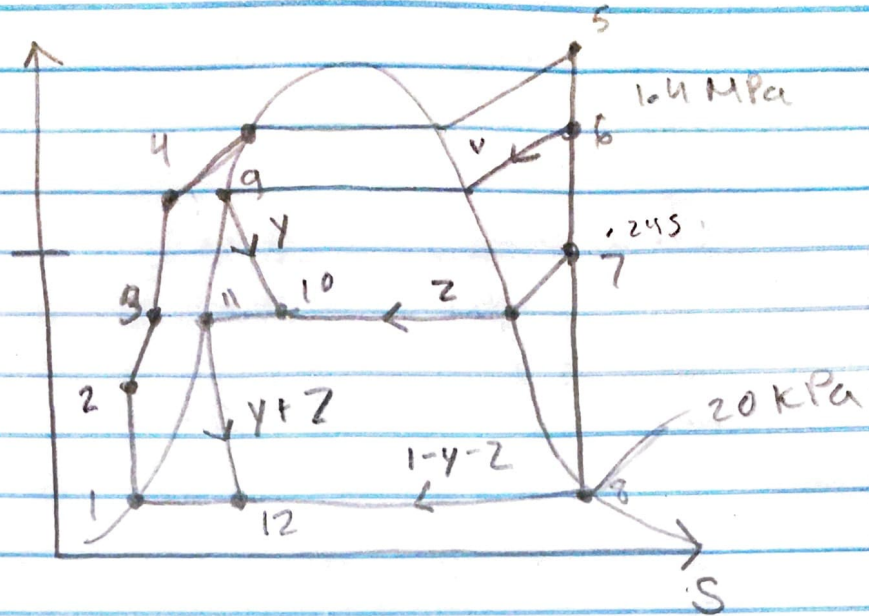 5
1.4 MPa
4
6
9
y
.245
7
3
11
10
z
2
y+z
20 kPa
1-y-z
1
12
8
S